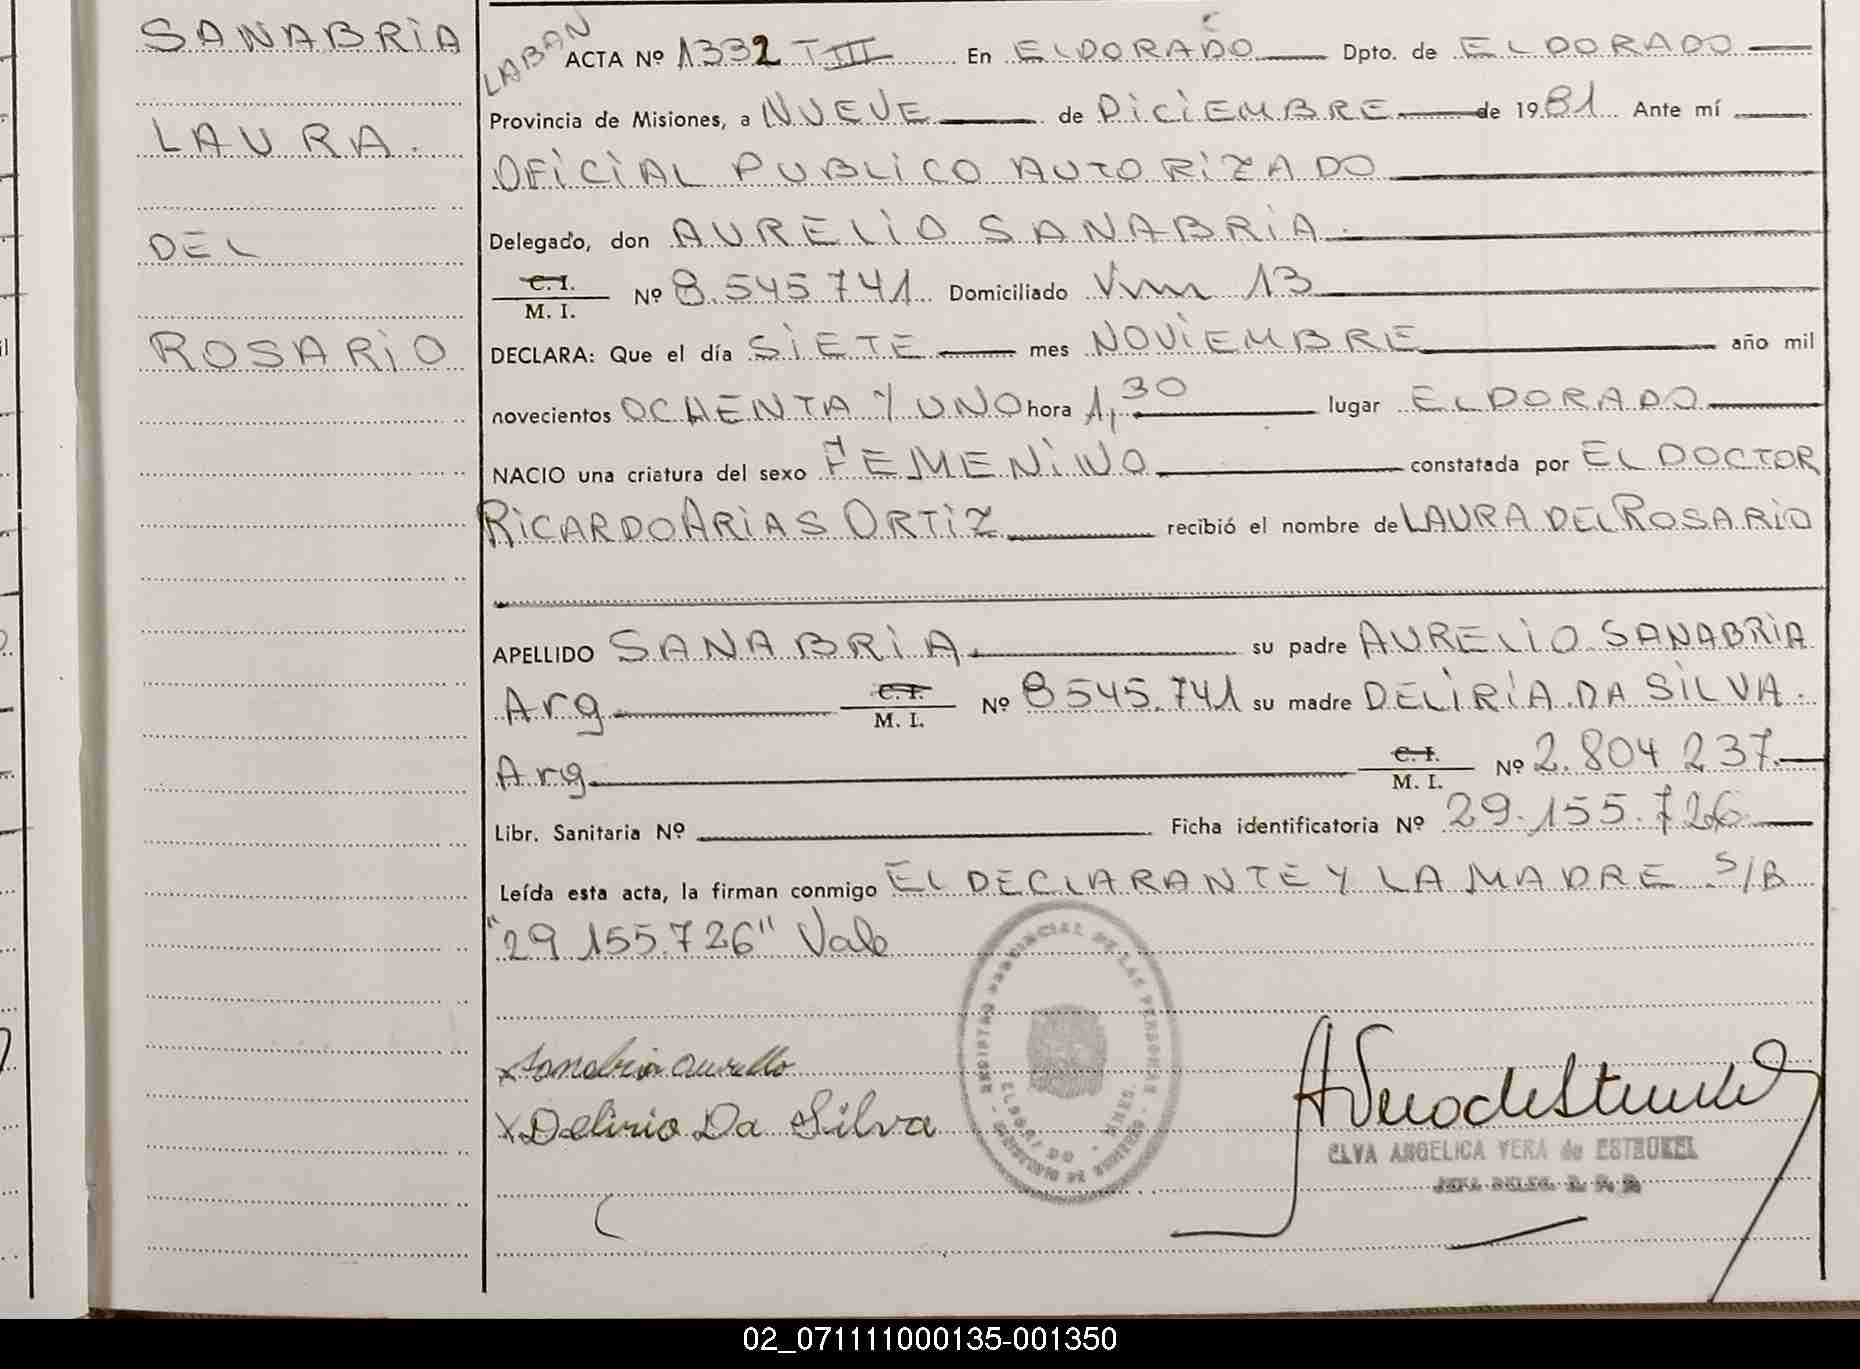 SANABRIA
LAURA.
DEL
ROSARIO
LABAN
ACTA Nº 1332 T III En ELDORADO Dpto. de ELDORADO
Provincia de Misiones, a NUEVE de DICIEMBRE de 1981 Ante mí
OFICIAL PUBLICO AUTORIZADO
Delegado, don AURELIO SANABRIA.
C. I.
M. I. Nº 8.545.741 Domiciliado Vm 13
DECLARA: Que el día SIETE mes NOVIEMBRE año mil
novecientos OCHENTA Y UNO hora 1,30 lugar ELDORADO
NACIO una criatura del sexo FEMENINO constatada por EL DOCTOR
RICARDO ARIAS ORTIZ recibió el nombre de LAURA DEL ROSARIO
APELLIDO SANABRIA. su padre AURELIO SANABRIA
Arg C. I. M. I. Nº 8545.741 su madre DELIRIA DA SILVA.
Arg C. I. M. I. Nº 2.804 237.
Libr. Sanitaria Nº Ficha identificatoria Nº 29.155.726
Leída esta acta, la firman conmigo EL DECLARANTE Y LA MADRE S/B
"29.155.726" Vale
REGISTRO PROVINCIAL DE LAS PERSONAS
ELDORADO - MNES.
x Sanabria Aurelio
x Deliria Da Silva
ELVA ANGELICA VERA de ESTRUKEL
02_071111000135-001350